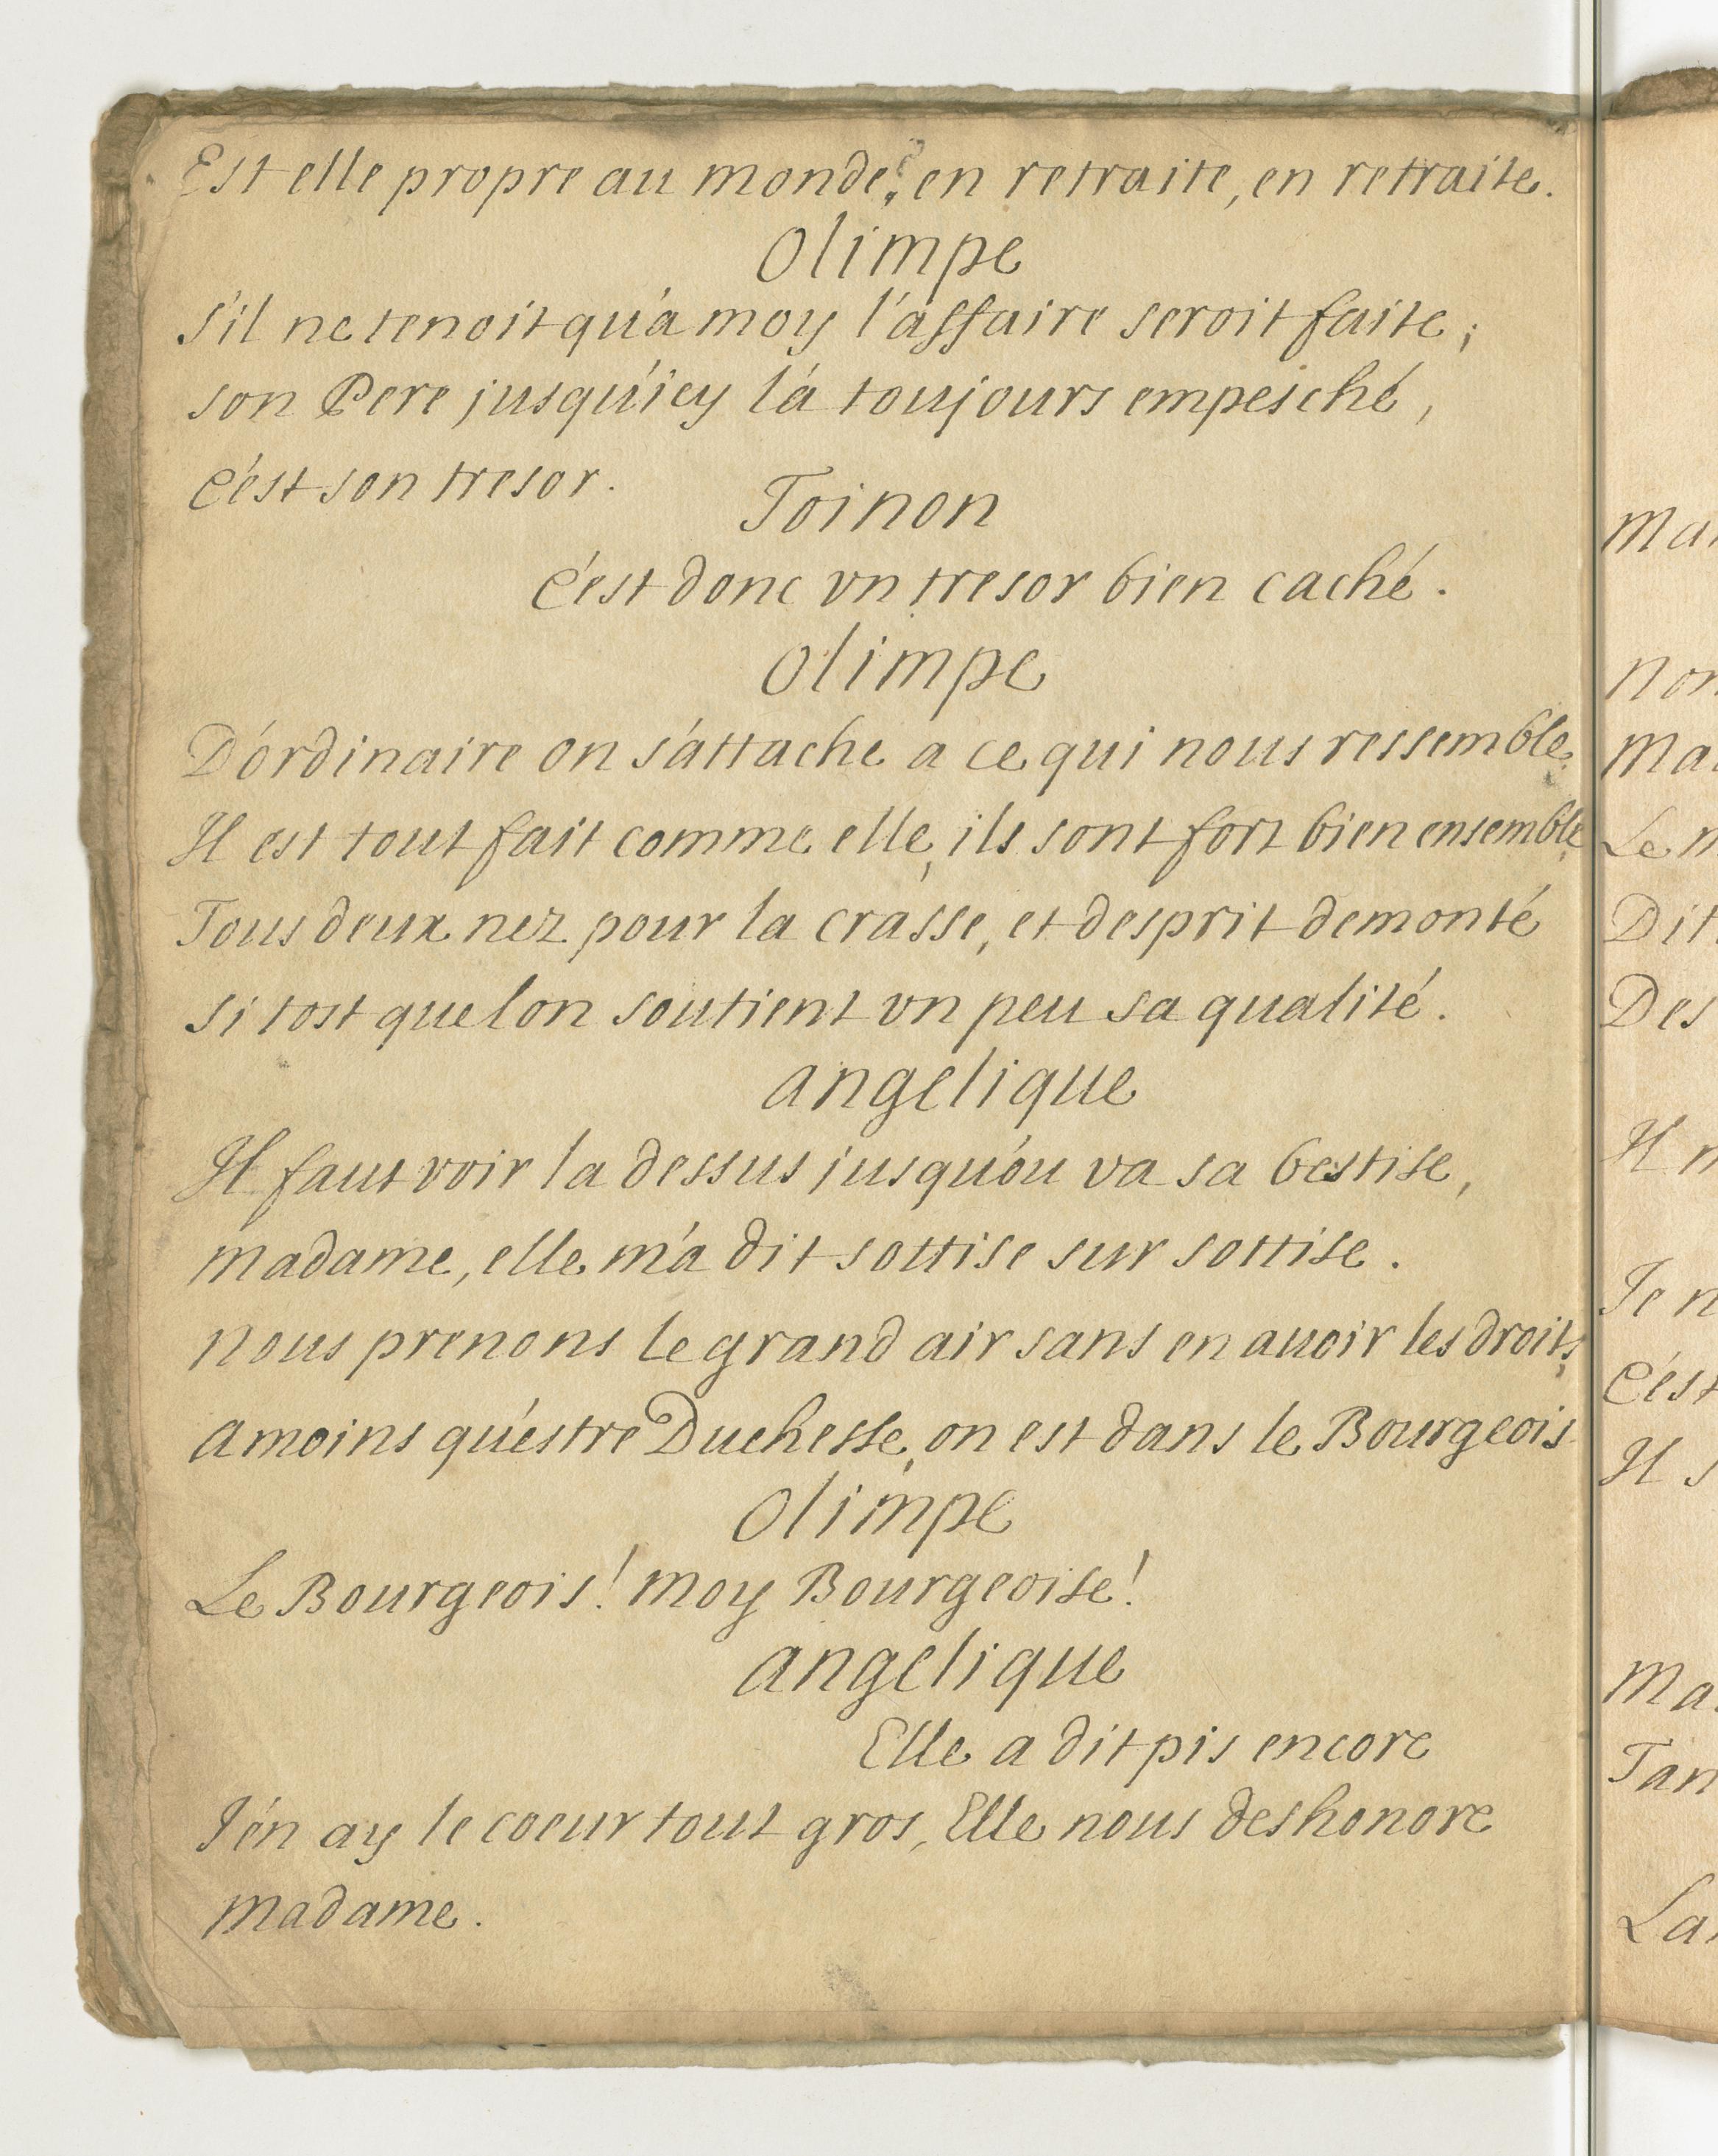 Est elle propre au monde? en retraite, en retraite.
Olimpe
s'il ne tenoit qu'a moy l'affaire seroit faite;
son Pere jusqu'icy l'a toujours empesché,
C'est son tresor.
Toinon
C'est donc vn tresor bien caché.
Olimpe
D'ordinaire on s'attache a ce qui nous ressemble.
Il est tout fait comme elle, ils sont fort bien ensemble,
Tous deux nez pour la crasse, et desprit demonté
si tost que lon soutient vn peu sa qualité.
angelique
Il faut voir la dessus jusqu'ou va sa bestise,
madame, elle m'a dit sottise sur sottise.
nous prenons le grand air sans en auoir les droits,
a moins qu'estre Duchesse, on est dans le Bourgeois
Olimpe
Le Bourgeois! moy Bourgeoise!
angelique
Elle a dit pis encore
J'en ay le coeur tout gros, Elle nous deshonore
madame.
Mai
Non
Ma
Le n
Dit
Des
Il n
Je n
C'est
Il s
Ma
Tan
La